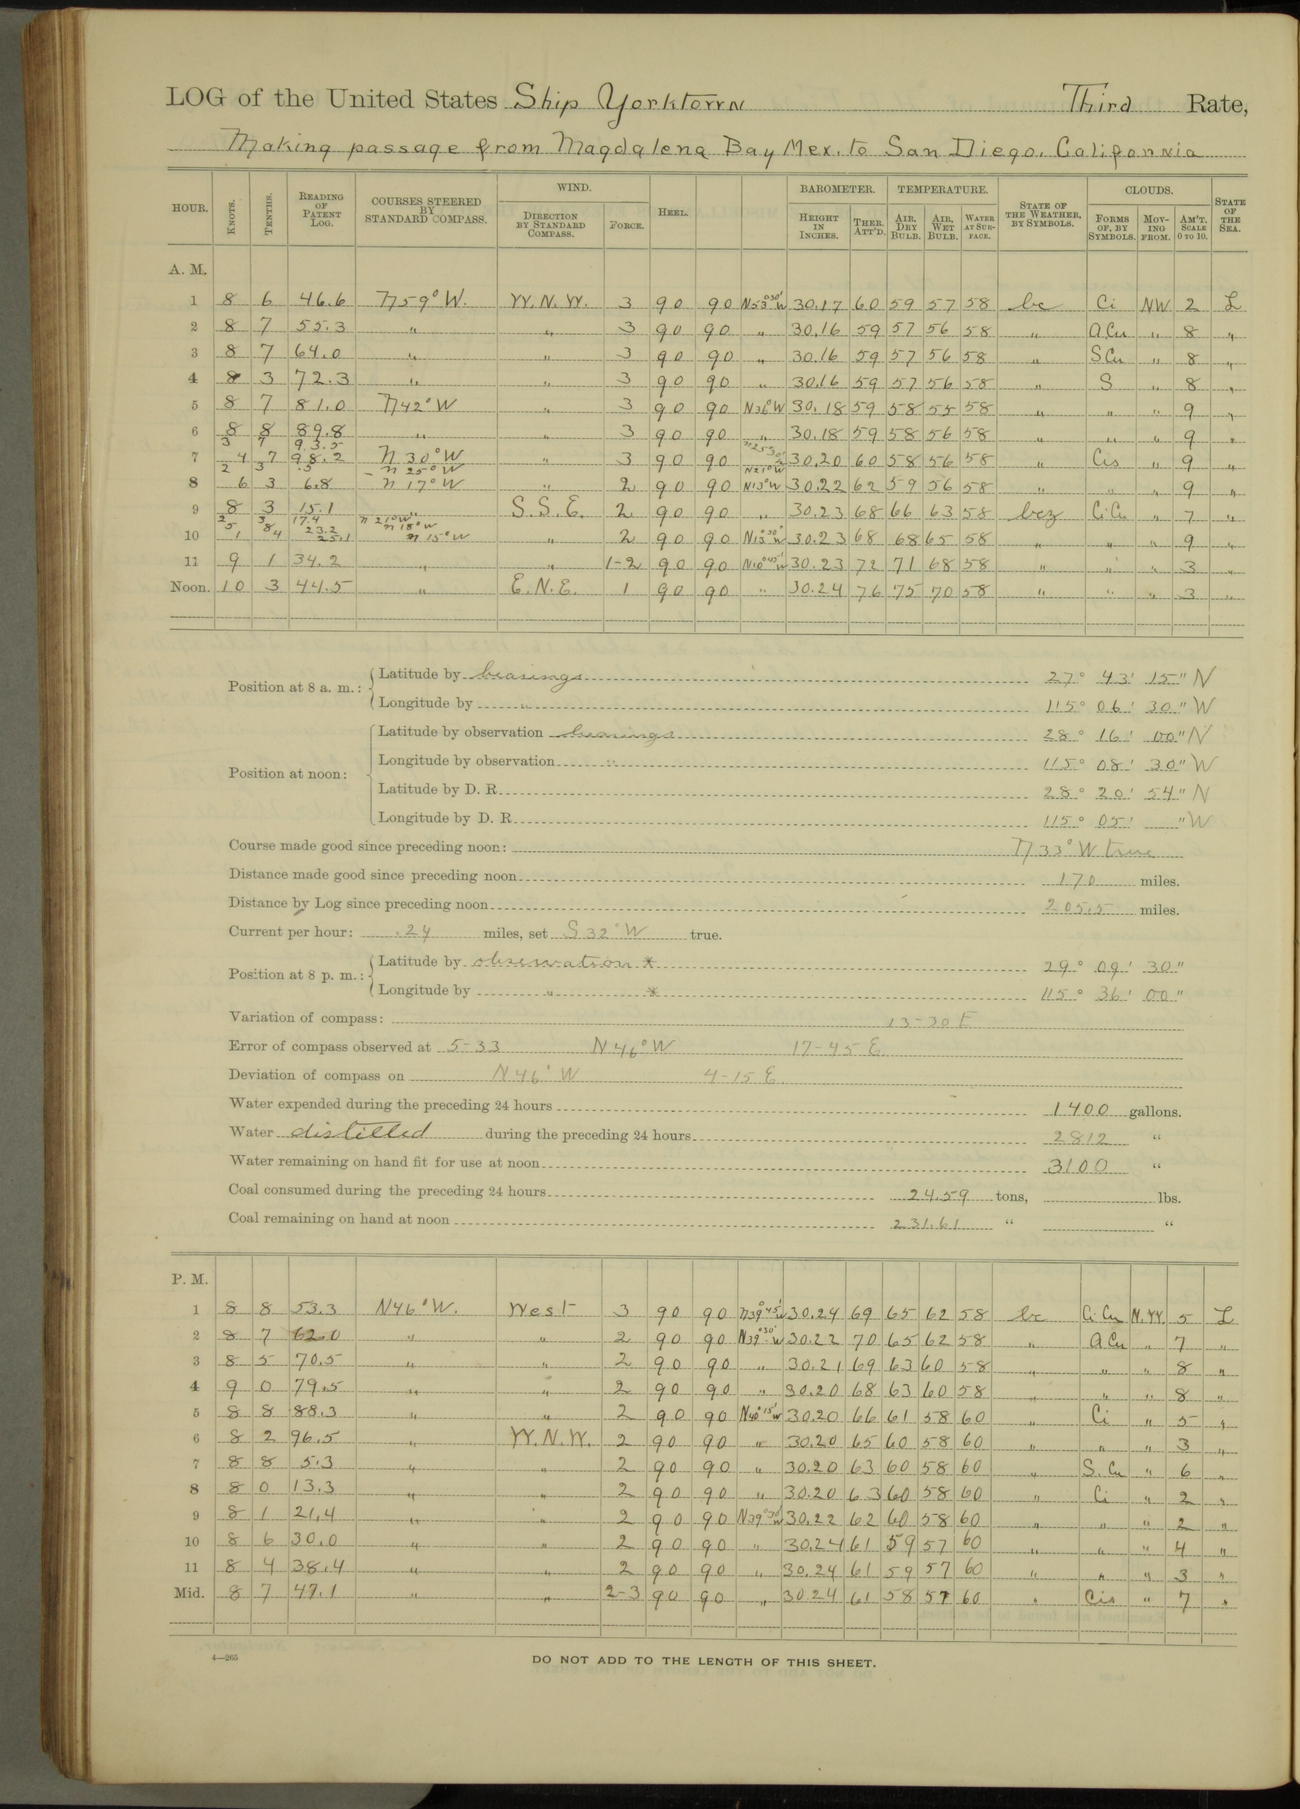 LOG of the United States Ship Yorktown Third Rate,
Making passage from Magdalena Bay Mex. to San Diego. California
HOUR. KNOTS. TENTHS. READING OF PATENT LOG. COURSES STEERED BY STANDARD COMPASS. WIND. DIRECTION BY STANDARD COMPASS. FORCE. HEEL. BAROMETER. HEIGHT IN INCHES. THER. ATT'D. TEMPERATURE. AIR, DRY BULB. AIR, WET BULB. WATER AT SURFACE. STATE OF THE WEATHER, BY SYMBOLS. CLOUDS. FORMS OF, BY SYMBOLS. MOVING FROM. AM'T. SCALE 0 TO 10. STATE OF THE SEA.
A. M.
1 8 6 46.6 N59°W. W.N.W. 3 90 90 N53°30'W 30.17 60 59 57 58 bc Ci NW 2 L
2 8 7 55.3 " " 3 90 90 " 30.16 59 57 56 58 " ACu " 8 "
3 8 7 64.0 " " 3 90 90 " 30.16 59 57 56 58 " SCu " 8 "
4 8 3 72.3 " " 3 90 90 " 30.16 59 57 56 58 " S " 8 "
5 8 7 81.0 N42°W " 3 90 90 N36°W 30.18 59 58 55 58 " " " 9 "
6 8 8 89.8 " " 3 90 90 " 30.18 59 58 56 58 " " " 9 "
3 7 93.5
7 4 7 98.2 N30°W " 3 90 90 30.20 60 58 56 58 " Cis " 9 "
2 3 .5 N25°W N21°W
8 6 3 6.8 N17°W " 2 90 90 N13°W 30.22 62 59 56 58 " " " 9 "
9 8 3 15.1 " S.S.E. 2 90 90 " 30.23 68 66 63 58 bcz CiCu " 7 "
2 3 17.4 N21°W
5 8 23.2 N18°W
10 1 4 25.1 N15°W " 2 90 90 N13°30'W 30.23 68 68 65 58 " " " 9 "
11 9 1 34.2 " " 1-2 90 90 N10°45'W 30.23 72 71 68 58 " " " 3 "
Noon. 10 3 44.5 " E.N.E. 1 90 90 " 30.24 76 75 70 58 " " " 3 "
Position at 8 a. m.: Latitude by bearings 27° 43' 15" N
Longitude by " 115° 06' 30" W
Position at noon: Latitude by observation bearings 28° 16' 00" N
Longitude by observation " 115° 08' 30" W
Latitude by D. R. 28° 20' 54" N
Longitude by D. R. 115° 05' " W
Course made good since preceding noon: N33°W true
Distance made good since preceding noon 170 miles.
Distance by Log since preceding noon 205.5 miles.
Current per hour: .24 miles, set S32°W true.
Position at 8 p. m.: Latitude by observation * 29° 09' 30"
Longitude by " * 115° 36' 00"
Variation of compass: 13-30 E
Error of compass observed at 5-33 N46°W 17-45 E
Deviation of compass on N46°W 4-15 E
Water expended during the preceding 24 hours 1400 gallons.
Water distilled during the preceding 24 hours 2812 "
Water remaining on hand fit for use at noon 3100 "
Coal consumed during the preceding 24 hours 24.59 tons, lbs.
Coal remaining on hand at noon 231.61 " "
P. M.
1 8 8 53.3 N46°W. West 3 90 90 N39°45'W 30.24 69 65 62 58 bc CiCu N.W. 5 L
2 8 7 62.0 " " 2 90 90 N39°30'W 30.22 70 65 62 58 " ACu " 7 "
3 8 5 70.5 " " 2 90 90 " 30.21 69 63 60 58 " " " 8 "
4 9 0 79.5 " " 2 90 90 " 30.20 68 63 60 58 " " " 8 "
5 8 8 88.3 " " 2 90 90 N40°15'W 30.20 66 61 58 60 " Ci " 5 "
6 8 2 96.5 " W.N.W. 2 90 90 " 30.20 65 60 58 60 " " " 3 "
7 8 8 5.3 " " 2 90 90 " 30.20 63 60 58 60 " S.Cu " 6 "
8 8 0 13.3 " " 2 90 90 " 30.20 63 60 58 60 " Ci " 2 "
9 8 1 21.4 " " 2 90 90 N39°30'W 30.22 62 60 58 60 " " " 2 "
10 8 6 30.0 " " 2 90 90 " 30.24 61 59 57 60 " " " 4 "
11 8 4 38.4 " " 2 90 90 " 30.24 61 59 57 60 " " " 3 "
Mid. 8 7 47.1 " " 2-3 90 90 " 30.24 61 58 57 60 " Cis " 7 "
4—265
DO NOT ADD TO THE LENGTH OF THIS SHEET.